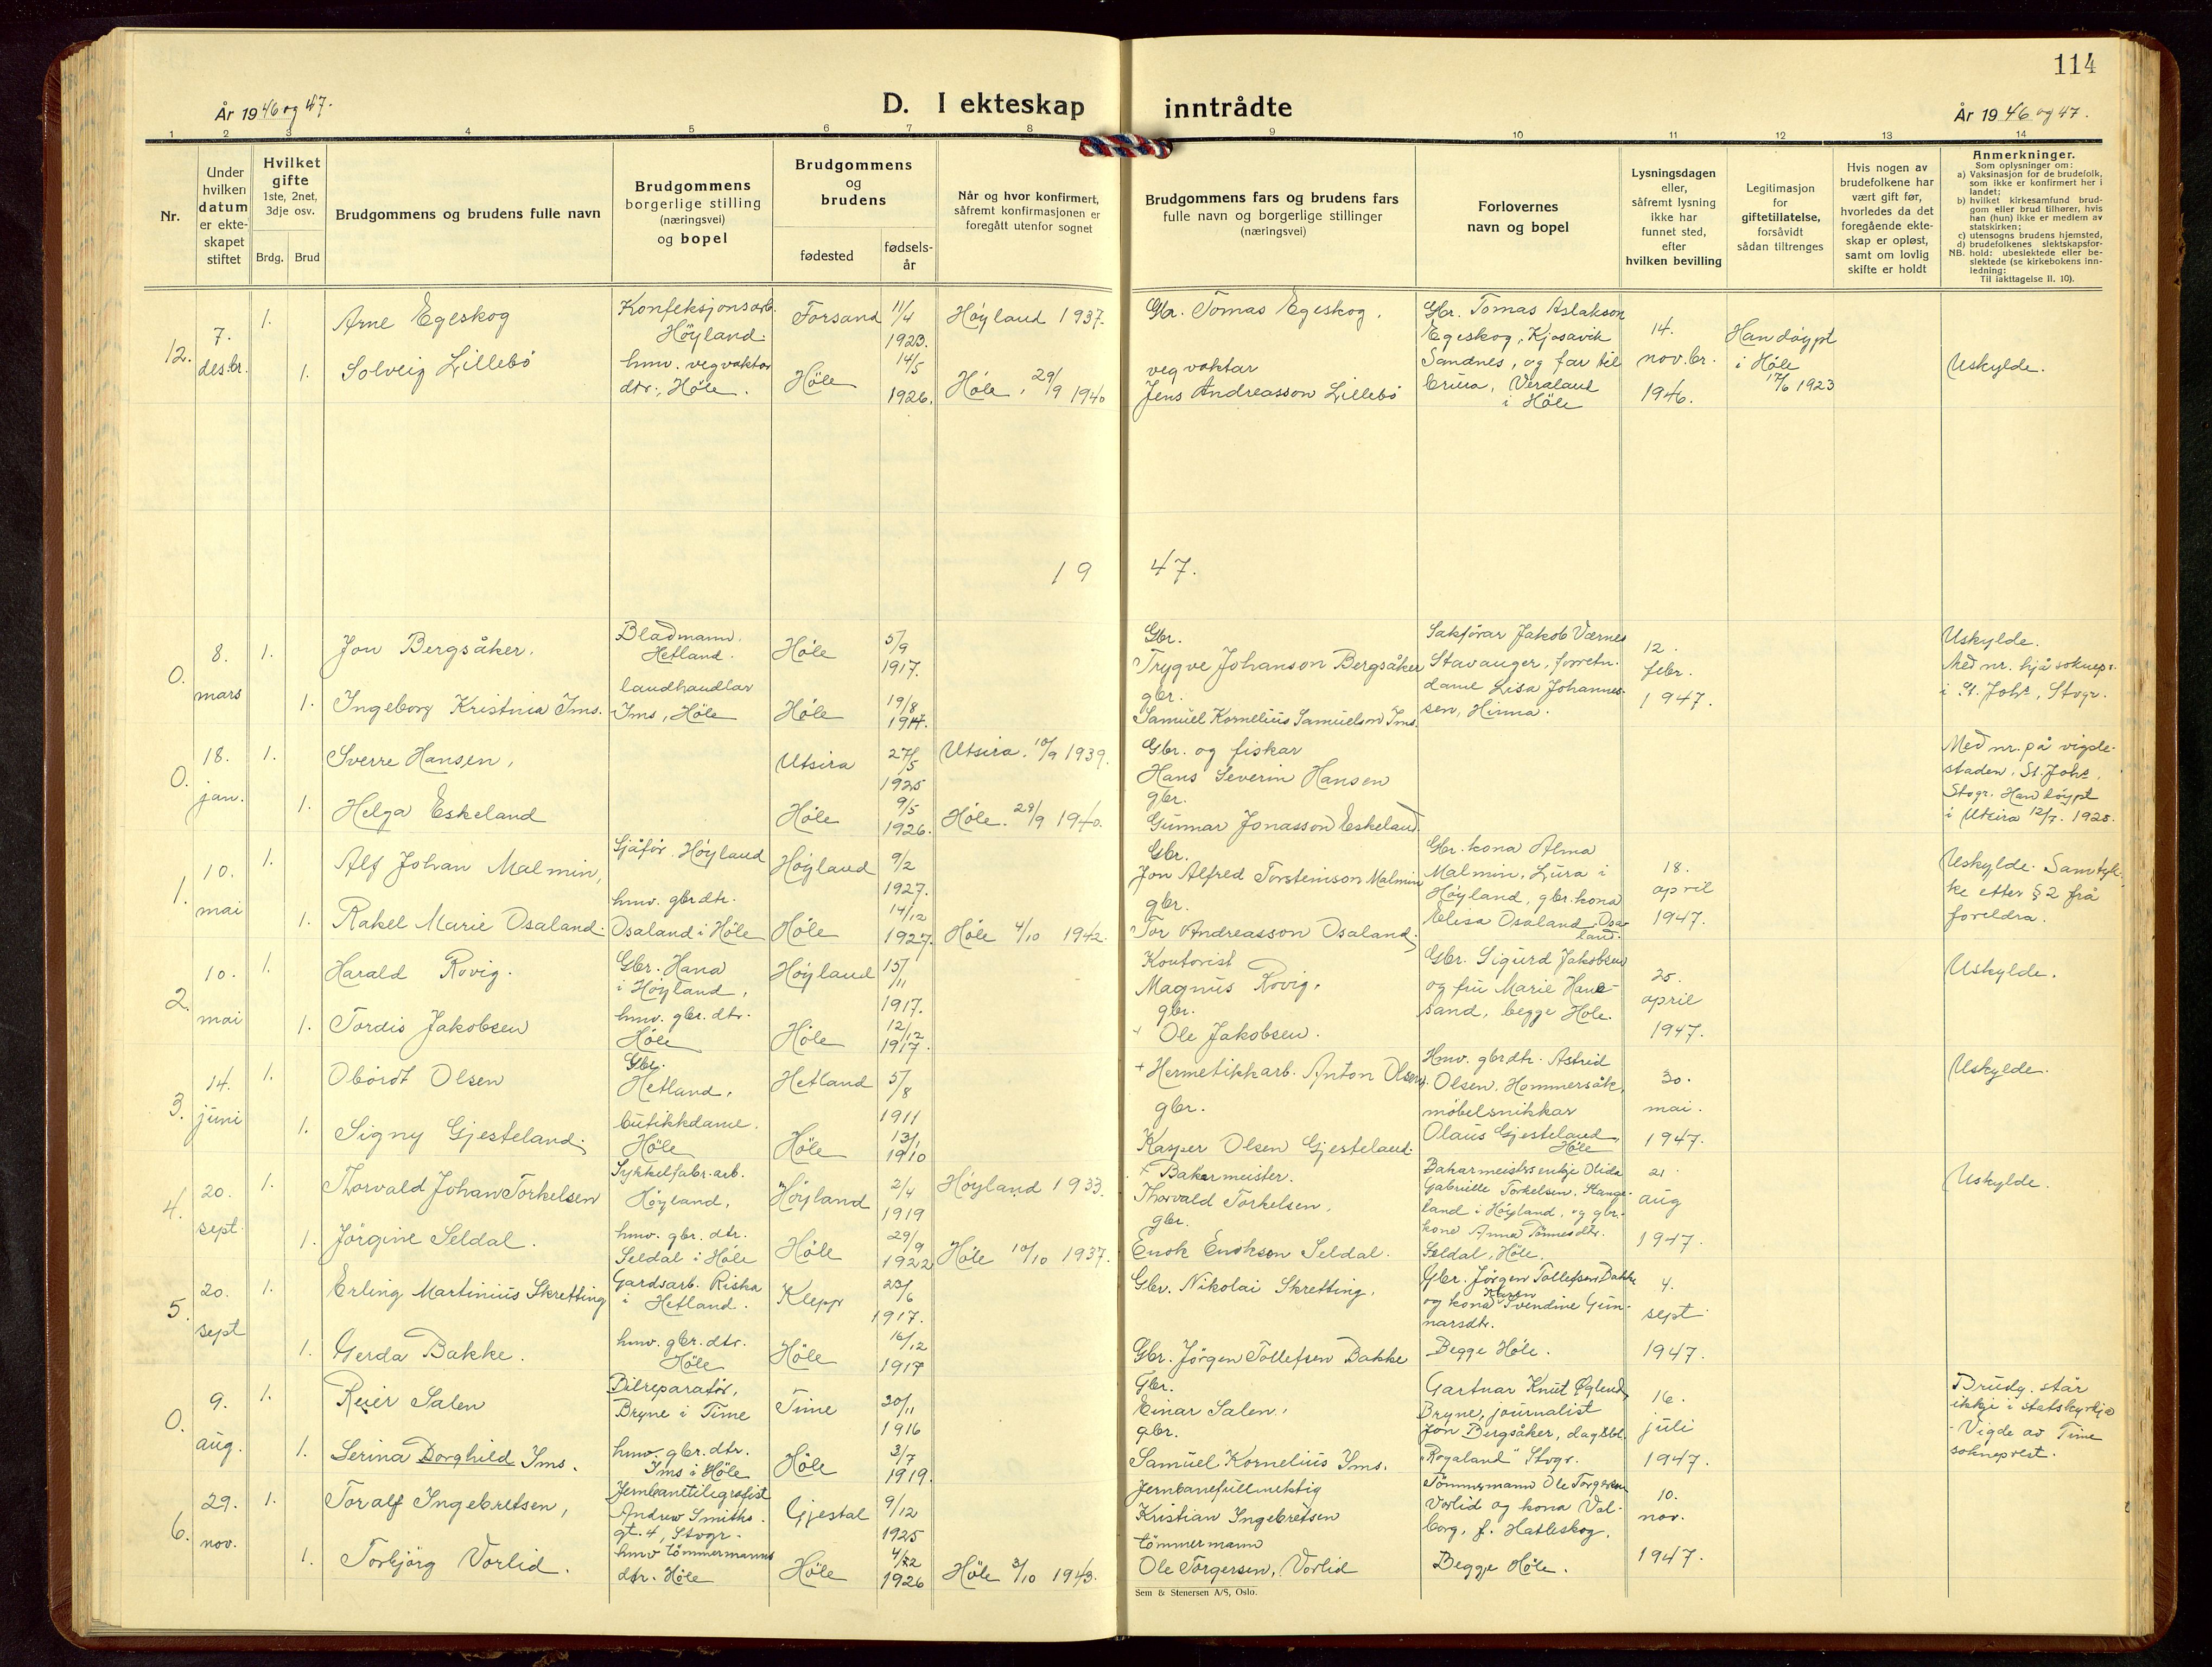 114
År 1946 og 47.
D. I ekteskap inntrådte
År 1946 og 47.
1 2 3 4 5 6 7 8 9 10 11 12 13 14
Nr.
Under hvilken datum er ekte-skapet stiftet
Hvilket gifte 1ste, 2net, 3dje osv.
Brdg. Brud
Brudgommens og brudens fulle navn
Brudgommens borgerlige stilling (næringsvei) og bopel
Brudgommens og brudens
fødested
fødsels-år
Når og hvor konfirmert, såfremt konfirmasjonen er foregått utenfor sognet
Brudgommens fars og brudens fars fulle navn og borgerlige stillinger (næringsvei)
Forlovernes navn og bopel
Lysningsdagen eller, såfremt lysning ikke har funnet sted, efter hvilken bevilling
Legitimasjon for giftetillatelse, forsåvidt sådan tiltrenges
Hvis nogen av brudefolkene har vært gift før, hvorledes da det foregående ekte-skap er opløst, samt om lovlig skifte er holdt
Anmerkninger.
Som oplysninger om:
a) Vaksinasjon for de brudefolk, som ikke er konfirmert her i landet;
b) hvilket kirkesamfund brud-gom eller brud tilhører, hvis han (hun) ikke er medlem av statskirken;
c) utensogns brudens hjemsted,
d) brudefolkenes slektskapsfor-hold: ubeslektede eller be-slektede (se kirkebokens inn-ledning:
NB. Til iakttagelse II. 10).
12. 7. des.br. 1. Arne Egeskog
Konfeksjonsarb. Høyland.
Forsand 11/4 1923. Høyland 1937.
Gbr. Tomas Egeskog.
Gbr. Tomas Aslakson Egeskog, Kjosavik Sandnes, og far til brura, Veraland i Höle
14. nov.br. 1946.
Han döypt i Höle 17/6 1923
Uskylde.
1. Solveig Lillebö
hmv. vegvaktar dtr., Höle.
Höle 14/5 1926. Höle, 29/9 1940
vegvaktar Jens Andreasson Lillebö
19 47.
0. 8. mars 1. Jon Bergsåker.
Bladmann. Hetland.
Höle 5/9 1917.
Gbr. Trygve Johanson Bergsåker
Sakförar Jakob Værnes Stavanger, forretn. dame Lisa Johannes-sen, Hinna.
12. febr. 1947.
Uskylde. Med nr. hjå soknepr. i St. Joh., Stvgr.
1. Ingeborg Kristina Ims.
landhandlar Ims, Höle
Höle 19/8 1914.
gbr. Samuel Kornelius Samuelson Ims.
0. 18. jan. 1. Sverre Hansen,
Utsira 27/5 1925 Utsira. 10/9 1939.
Gbr. og fiskar Hans Severin Hansen
Med nr. på vigsle-staden, St. Joh., Stvgr. Han döypt i Utsira 12/7. 1925.
1. Helga Eskeland
Höle 9/5 1926. Höle. 29/9 1940.
gbr. Gunnar Jonasson Eskeland.
1. 10. mai 1. Alf Johan Malmin,
Sjåför. Höyland
Höyland 9/2 1927.
Gbr. Jon Alfred Torsteinson Malmin
Gbr. kona Alma Malmin, Lura i Höyland, gbr. kona Elisa Osaland, Osa-land.
18. april 1947.
Uskylde. Samtyk-ke etter § 2 frå foreldra.
1. Rakel Marie Osaland.
hmv. gbrdtr. Osaland i Höle
Höle 14/12 1927. Höle 4/10 1942.
gbr. Tor Andreasson Osaland
2. 10. mai 1. Harald Rovig.
Gbr. Hana i Höyland,
Höyland 15/11 1917.
Kontorist Magnus Rovig.
Gbr. Sigurd Jakobsen og fru Marie Hane-sand, begge Höle.
25. april 1947.
Uskylde.
1. Tordis Jakobsen
hmv. gbr. dtr. Höle
Höle 12/12 1917.
gbr. Ole Jakobsen.
3. 14. juni 1. Obördt Olsen
Gbr. Hetland,
Hetland 5/8 1911
+ Hermetikkarb. Anton Olsen
Hmv. gbrdtr. Astrid Olsen, Hommersåk, möbelsnikkar Olaus Gjesteland, Höle
30. mai. 1947.
Uskylde.
1. Signy Gjesteland.
butikkdame. Höle
Höle 13/1 1910
gbr. Kasper Olsen Gjesteland.
4. 20. sept. 1. Thorvald Johan Torkelsen
Sykkelfabr.arb. Höyland,
Höyland 2/4 1919 Höyland 1933.
+ Bakermeister. Thorvald Torkelsen,
Bakarmeistersenkje Olida Gabrielle Torkelsen, Stange-land i Höyland, og gbr.-kone Anna Tönnesdtr. Seldal, Höle.
21. aug 1947.
Uskylde.
1. Jörgine Seldal.
hmv. gbr. dtr. Seldal i Höle
Höle 29/9 1922 Höle 10/10 1937.
gbr. Enok Enokson Seldal.
5. 20. sept 1. Erling Martinius Skretting
Gardsarb. Riska i Hetland.
Klepp 23/6 1917.
Gbr. Nikolai Skretting.
Gbr. Jörgen Tollefsen Bakke og kona Karen Svendine Gun-narsdtr. Begge Höle.
4. sept 1947.
1. Gerda Bakke.
hmv. gbr. dtr. Höle
Höle 16/12 1917
Gbr. Jörgen Tollefsen Bakke
0. 9. aug. 1. Reier Salen
Bilreparatör, Bryne i Time
Time 20/11 1916
Gbr. Einar Salen,
Gartnar Knut Øglend, Bryne, journalist Jon Bergsåker, dagbl. "Rogaland" Stvgr.
16. juli 1947.
Brudg. står ikkje i statskyrkja - Vigde av Time sokneprest.
1. Serina Borghild Ims.
hmv. gbr. dtr. Ims i Höle
Höle 3/7 1919.
gbr. Samuel Kornelius Ims.
6. 29. nov. 1. Toralf Ingebretsen,
Jernbanetelegrafist Andrew Smiths gt. 4, Stvgr.
Gjestal 9/12 1925
Jernbanefullmektig Kristian Ingebretsen
Tömmermann Ole Torgersen Vorlid og kona Val-borg, f. Hatleskog. Begge Höle.
10. nov. 1947.
1. Torbjörg Vorlid.
hmv tömmermanns dtr. Höle
Höle 1926 Höle 3/10 1943.
tömmermann Ole Torgersen, Vorlid
Sem & Stenersen A/S, Oslo.